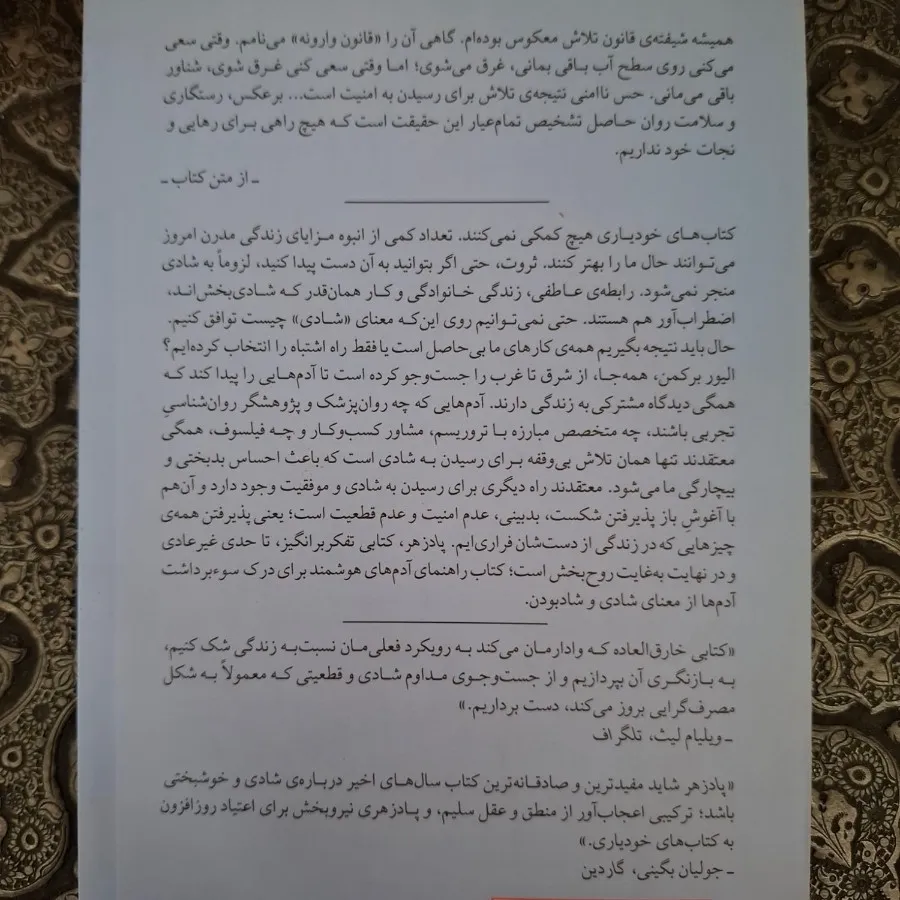 همیشه شیفته‌ی قانون تلاش معکوس بوده‌ام. گاهی آن را «قانون وارونه» می‌نامم. وقتی سعی
می‌کنی روی سطح آب باقی بمانی، غرق می‌شوی؛ اما وقتی سعی کنی غرق شوی، شناور
باقی می‌مانی. حس ناامنی نتیجه‌ی تلاش برای رسیدن به امنیت است... برعکس، رستگاری
و سلامت روان حاصل تشخیص تمام‌عیار این حقیقت است که هیچ راهی برای رهایی و
نجات خود نداریم.
ـ از متن کتاب ـ
کتاب‌های خودیاری هیچ کمکی نمی‌کنند. تعداد کمی از انبوه مزایای زندگی مدرن امروز
می‌توانند حال ما را بهتر کنند. ثروت، حتی اگر بتوانید به آن دست پیدا کنید، لزوماً به شادی
منجر نمی‌شود. رابطه‌ی عاطفی، زندگی خانوادگی و کار همان‌قدر که شادی‌بخش‌اند،
اضطراب‌آور هم هستند. حتی نمی‌توانیم روی این‌که معنای «شادی» چیست توافق کنیم.
حال باید نتیجه بگیریم همه‌ی کارهای ما بی‌حاصل است یا فقط راه اشتباه را انتخاب کرده‌ایم؟
الیور برکمن، همه‌جا، از شرق تا غرب را جست‌وجو کرده است تا آدم‌هایی را پیدا کند که
همگی دیدگاه مشترکی به زندگی دارند. آدم‌هایی که چه روان‌پزشک و پژوهشگر روان‌شناسیِ
تجربی باشند، چه متخصص مبارزه با تروریسم، مشاور کسب‌وکار و چه فیلسوف، همگی
معتقدند تنها همان تلاش بی‌وقفه برای رسیدن به شادی است که باعث احساس بدبختی و
بیچارگی ما می‌شود. معتقدند راه دیگری برای رسیدن به شادی و موفقیت وجود دارد و آن‌هم
با آغوشِ باز پذیرفتن شکست، بدبینی، عدم امنیت و عدم قطعیت است؛ یعنی پذیرفتن همه‌ی
چیزهایی که در زندگی از دست‌شان فراری‌ایم. پادزهر، کتابی تفکربرانگیز، تا حدی غیرعادی
و در نهایت به‌غایت روح‌بخش است؛ کتاب راهنمای آدم‌های هوشمند برای درک سوءبرداشت
آدم‌ها از معنای شادی و شادبودن.
«کتابی خارق‌العاده که وادارمان می‌کند به رویکرد فعلی‌مان نسبت‌به زندگی شک کنیم،
به بازنگری آن بپردازیم و از جست‌وجوی مداوم شادی و قطعیتی که معمولاً به شکل
مصرف‌گرایی بروز می‌کند، دست برداریم.»
ـ ویلیام لیث، تلگراف
«پادزهر شاید مفیدترین و صادقانه‌ترین کتاب سال‌های اخیر درباره‌ی شادی و خوشبختی
باشد؛ ترکیبی اعجاب‌آور از منطق و عقل سلیم، و پادزهری نیروبخش برای اعتیاد روزافزون
به کتاب‌های خودیاری.»
ـ جولیان بگینی، گاردین